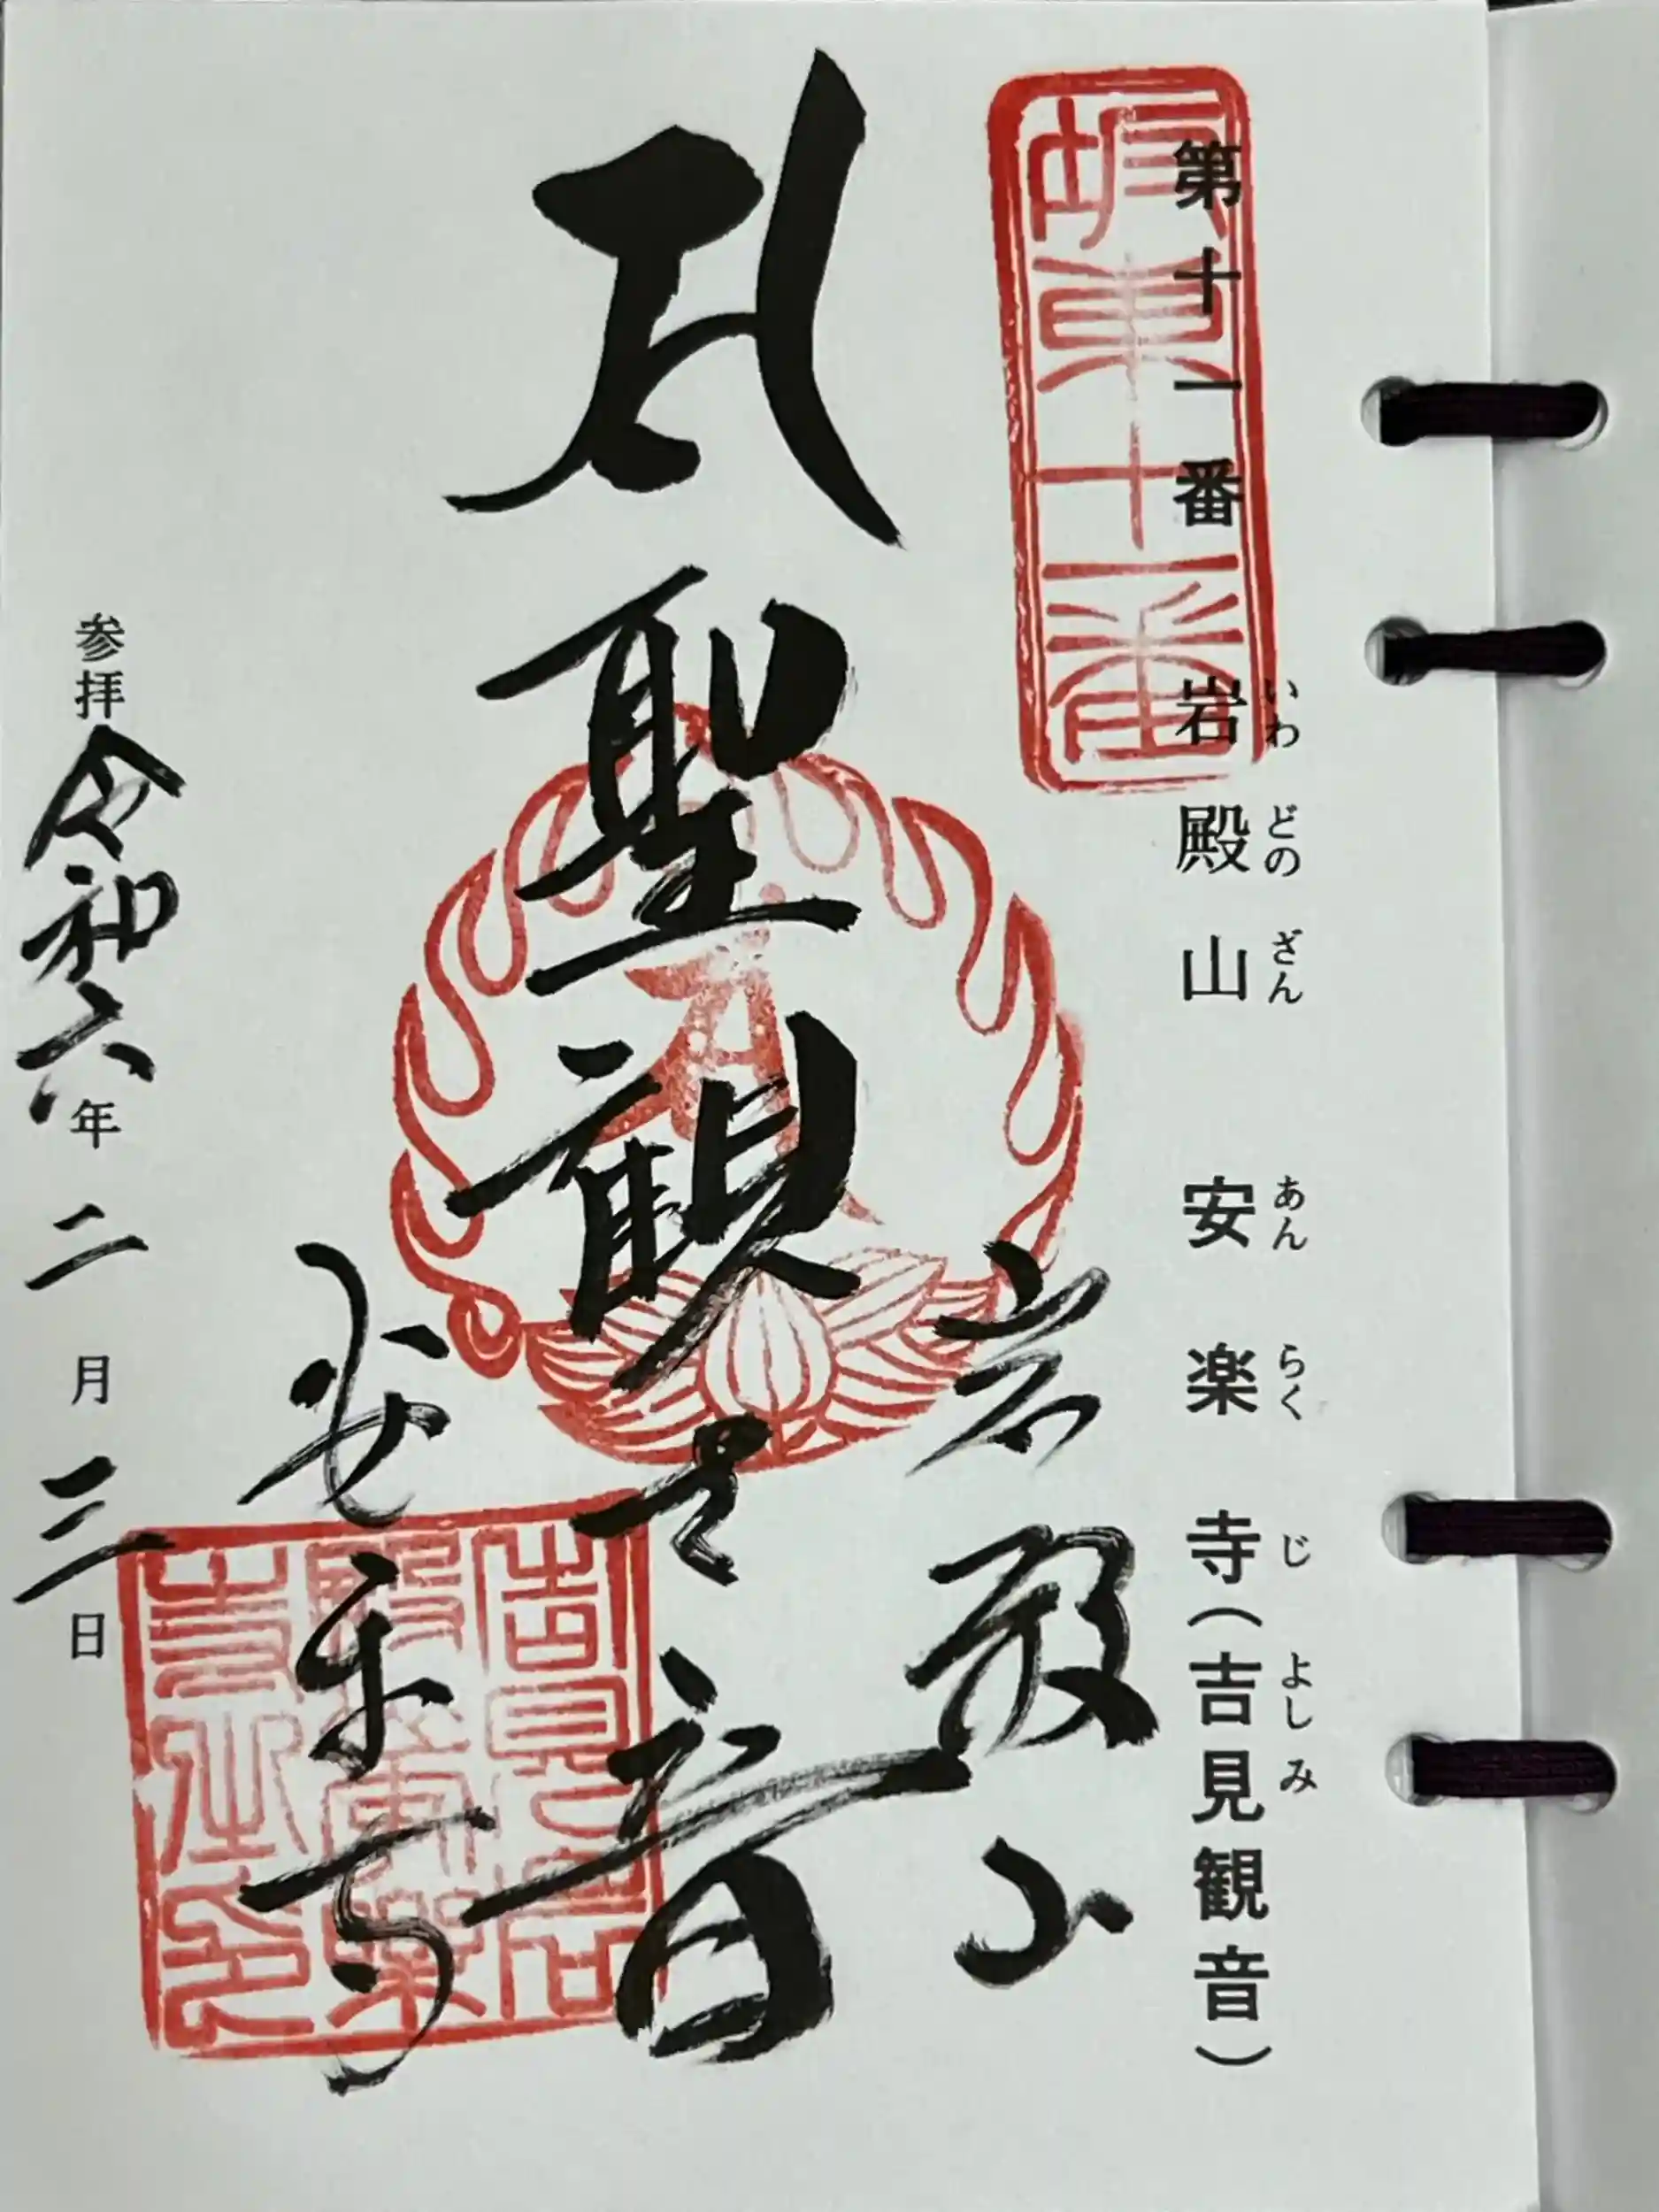 第十一番 岩殿山 安楽寺(吉見観音)
いわ どの ざん あん らく じ よし み
坂東十一番
岩殿山
聖観世音
安楽寺
参拝 令和六年 二月 三日